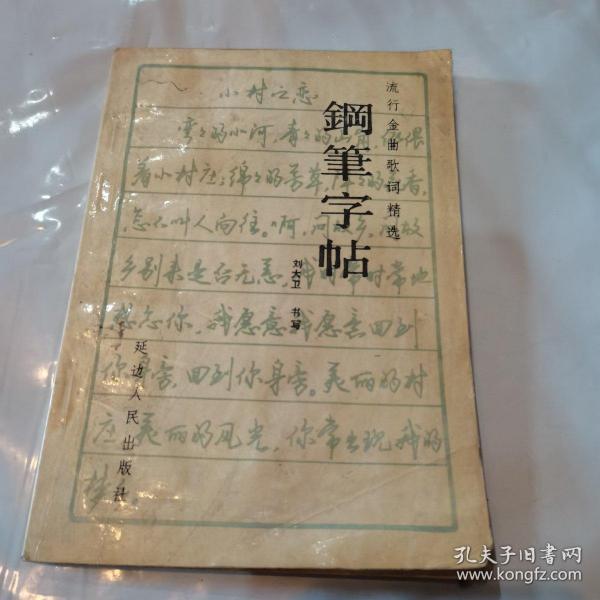 流行金曲歌词精选
鋼筆字帖
刘大卫 书写
小村之恋
弯々的小河,青々的山岗,依偎
着小村庄;绵々的芳草,阵々的花香,
怎不叫人向往。啊,问故乡,
乡别来是否无恙,我时常时常地
想念你,我愿意我愿意回到
你身旁,回到你身旁。美丽的村
庄美丽的风光,你常出现我的
梦乡。
延边人民出版社
孔夫子旧书网
www.kongfz.com